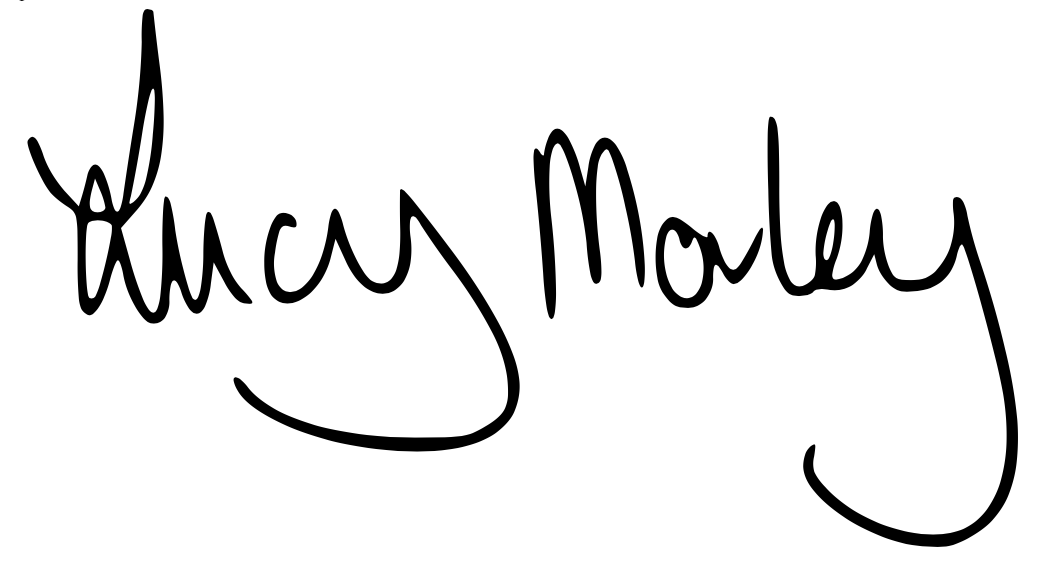 Lucy Morley